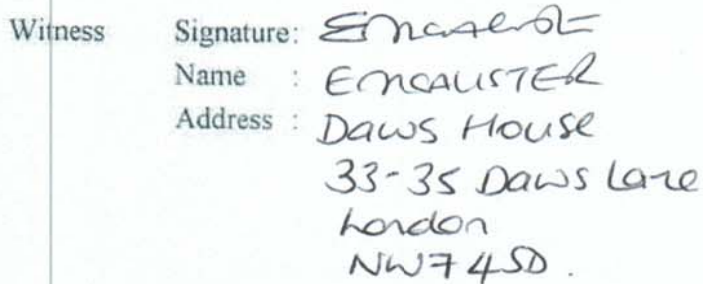 Witness Signature: EMcAlister
Name : E MCALISTER
Address : Daws House
33-35 Daws Lane
London
NW7 4SD.